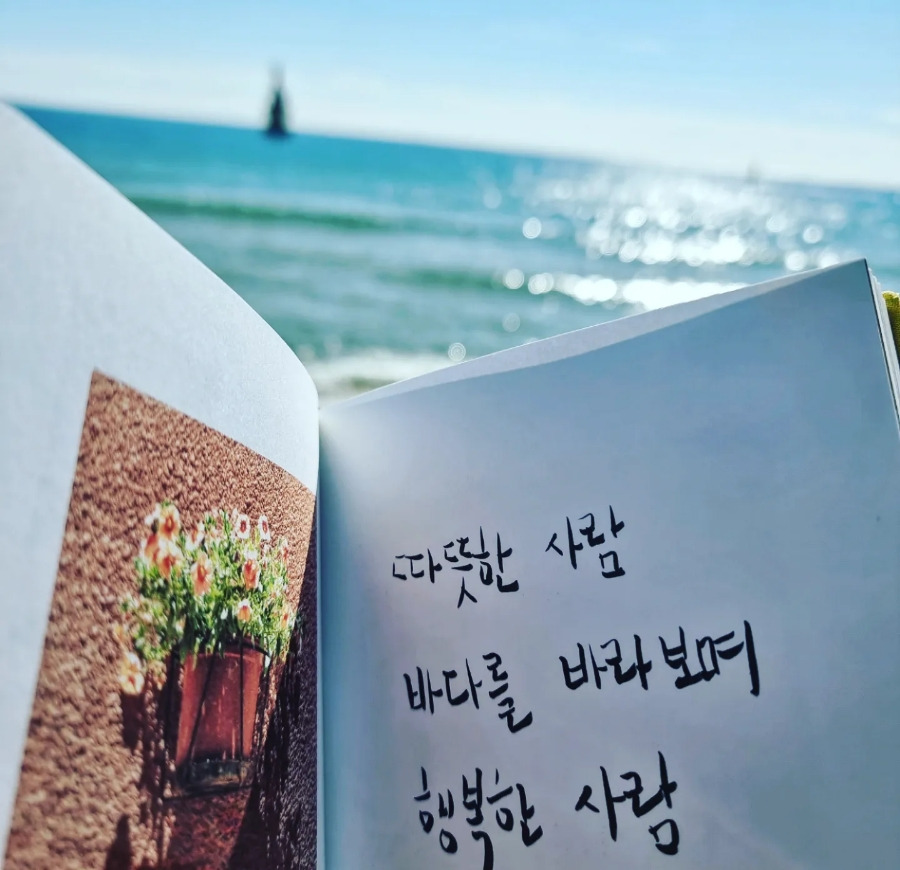 따뜻한 사람
바다를 바라보며
행복한 사람